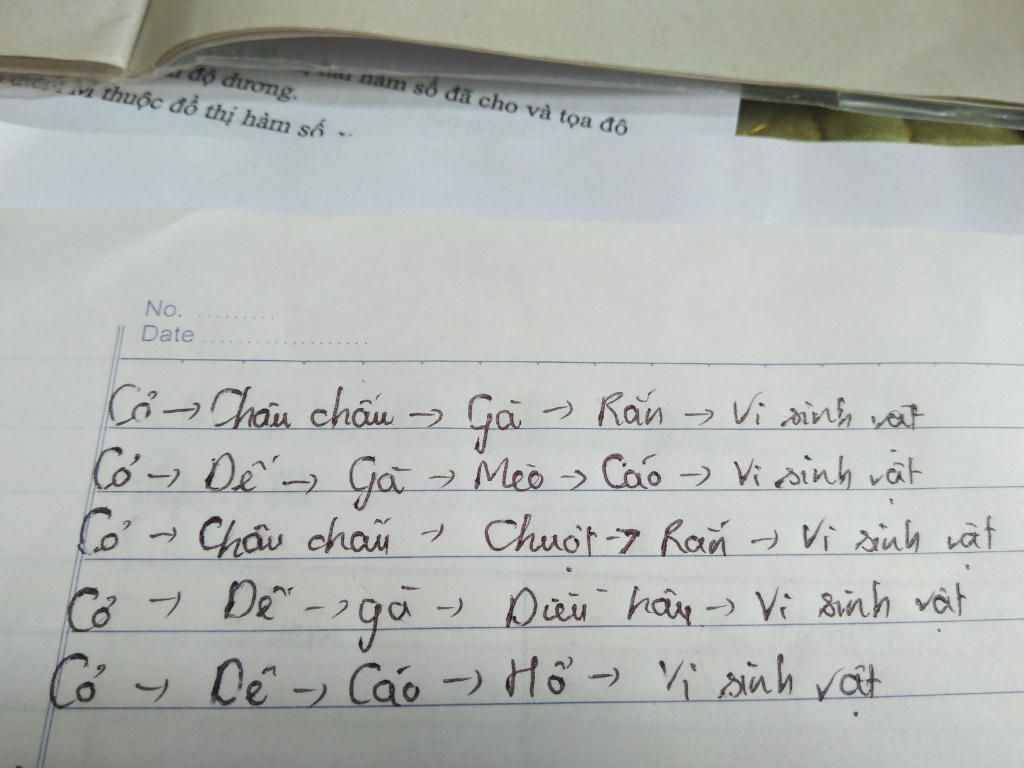 độ dương.
hai hàm số đã cho và tọa độ
điểm M thuộc đồ thị hàm số
No. .........
Date ...................
Cỏ → Châu chấu → Gà → Rắn → Vi sinh vật
Cỏ → Dế → Gà → Mèo → Cáo → Vi sinh vật
Cỏ → Châu chấu → Chuột → Rắn → Vi sinh vật
Cỏ → Dế → gà → Diều hâu → Vi sinh vật
Cỏ → Dê → Cáo → Hổ → Vi sinh vật